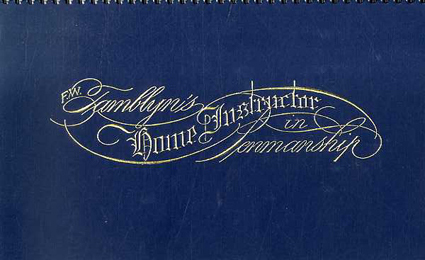 F.W. Tamblyn's
Home Instructor
in
Penmanship